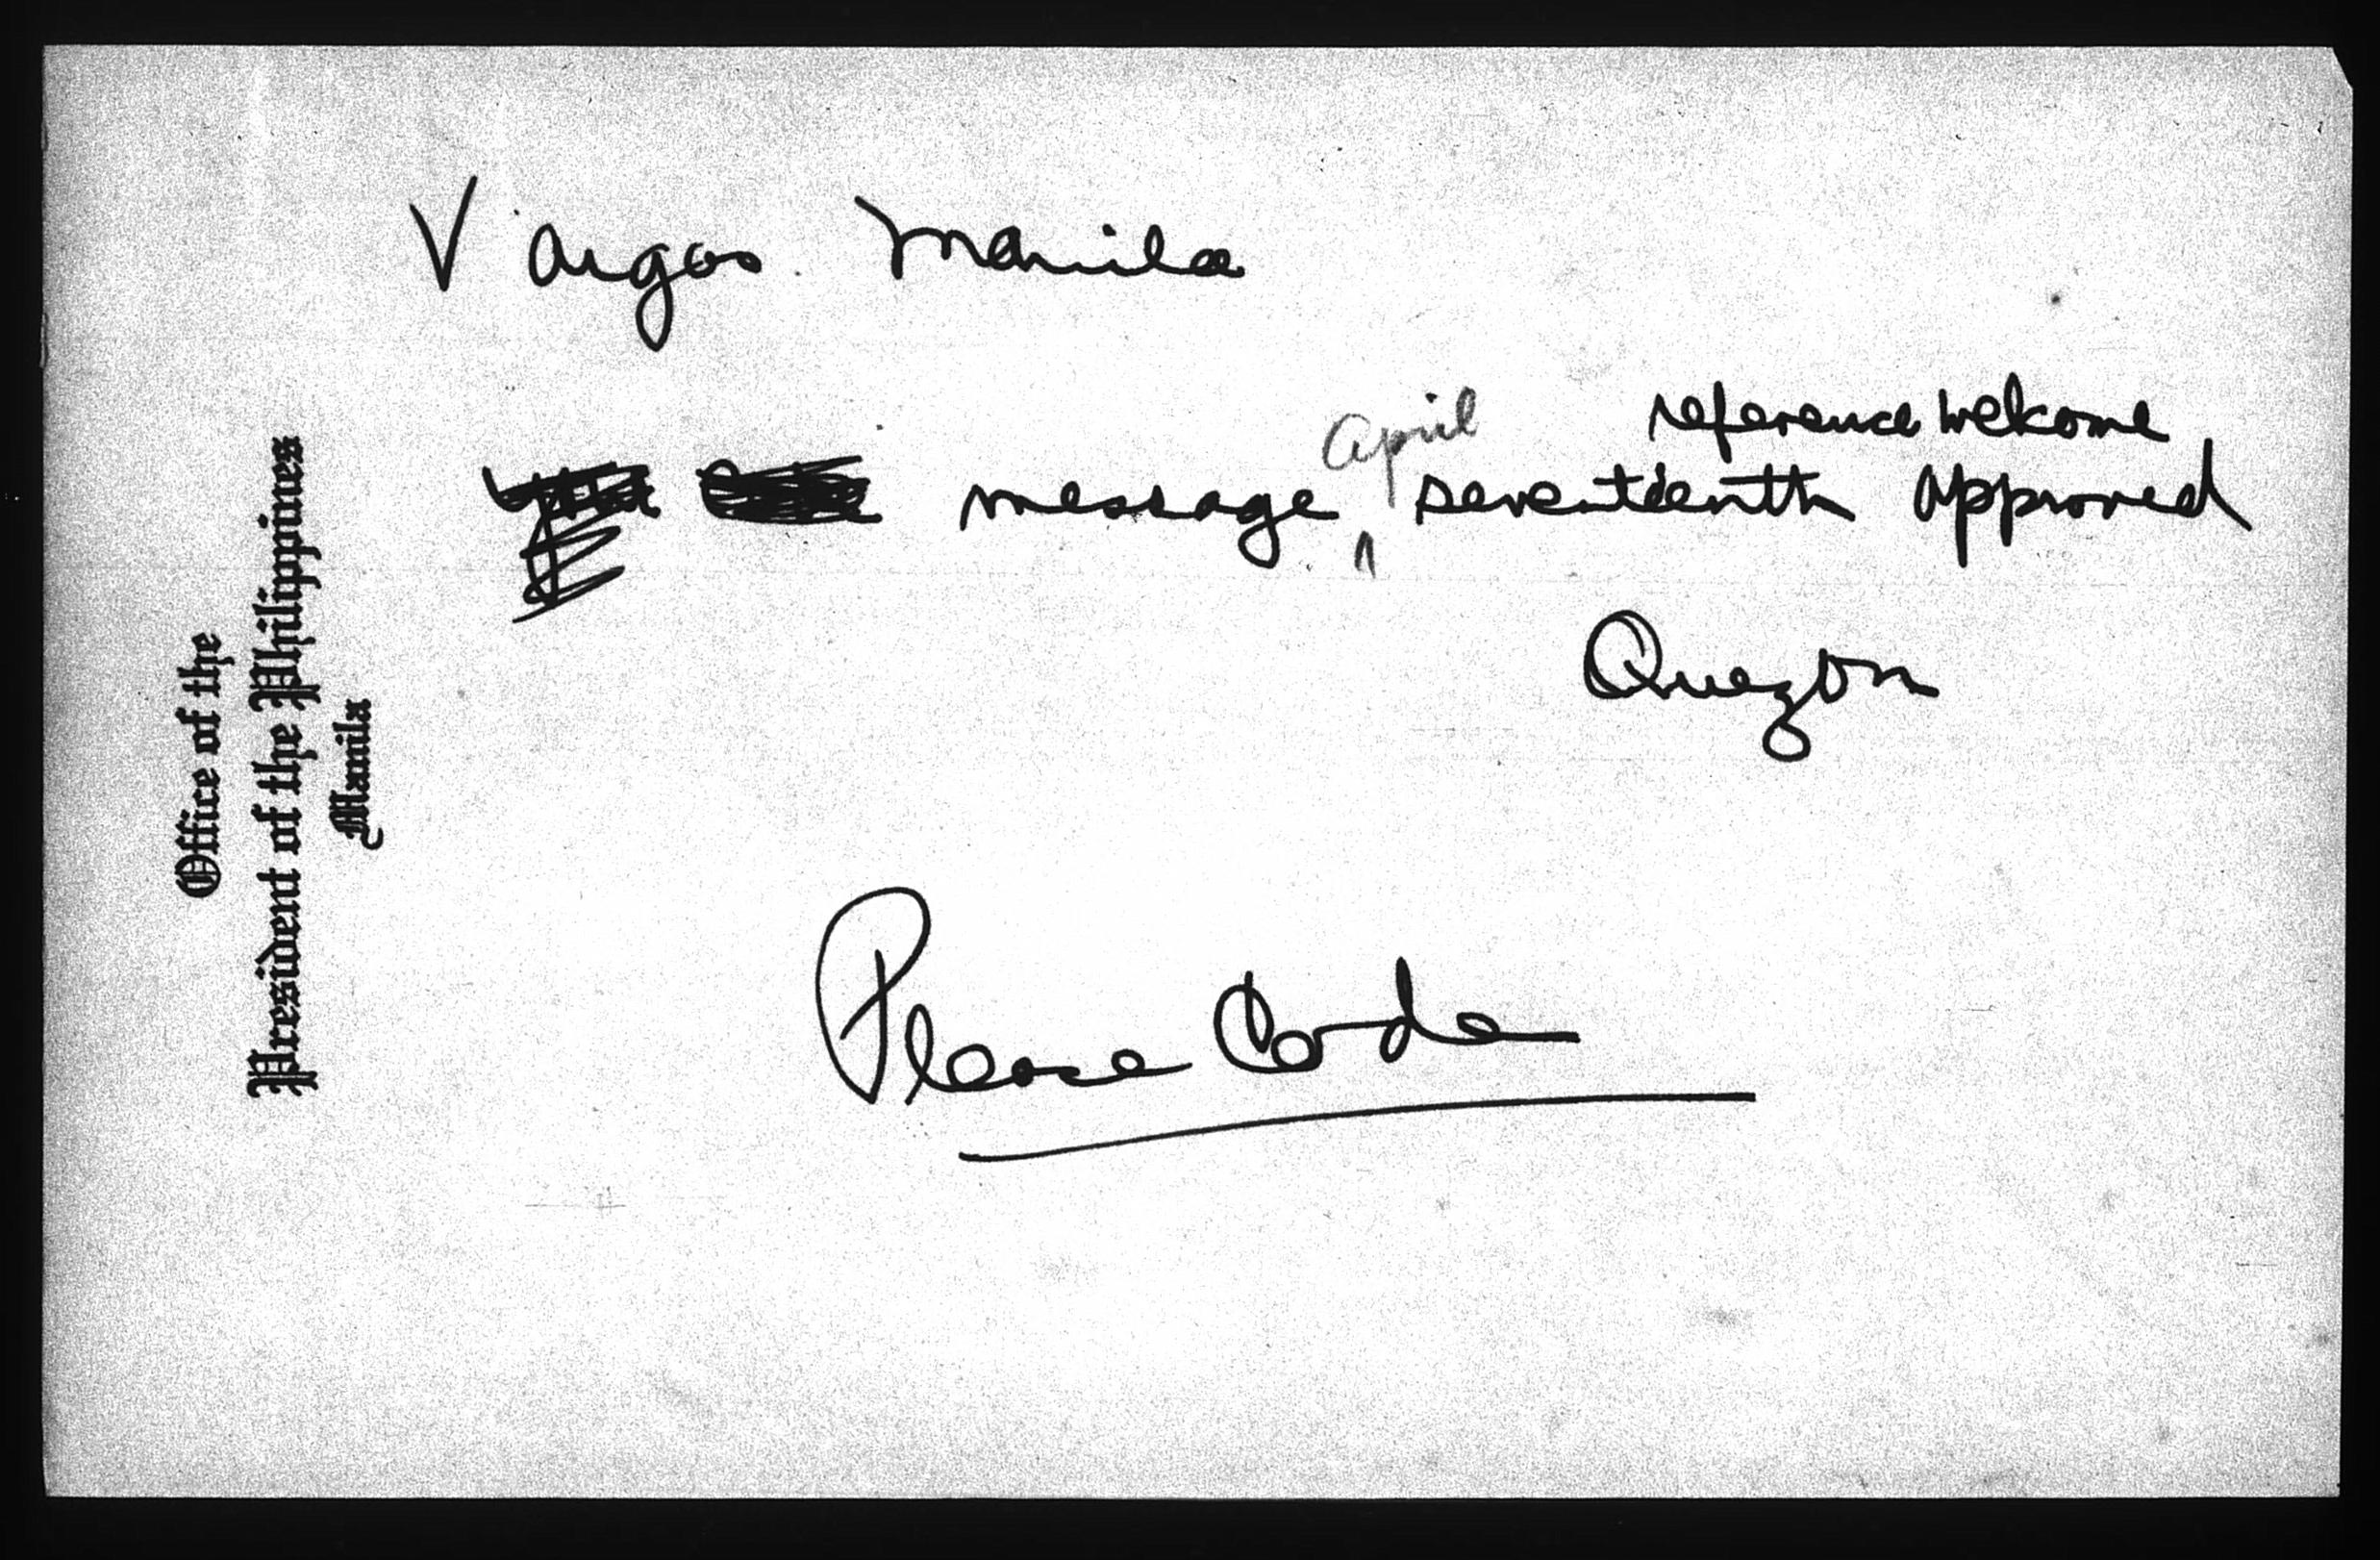 Office of the
President of the Philippines
Manila
Vargas Manila
message April seventeenth reference welcome approved
Quezon
Please Code